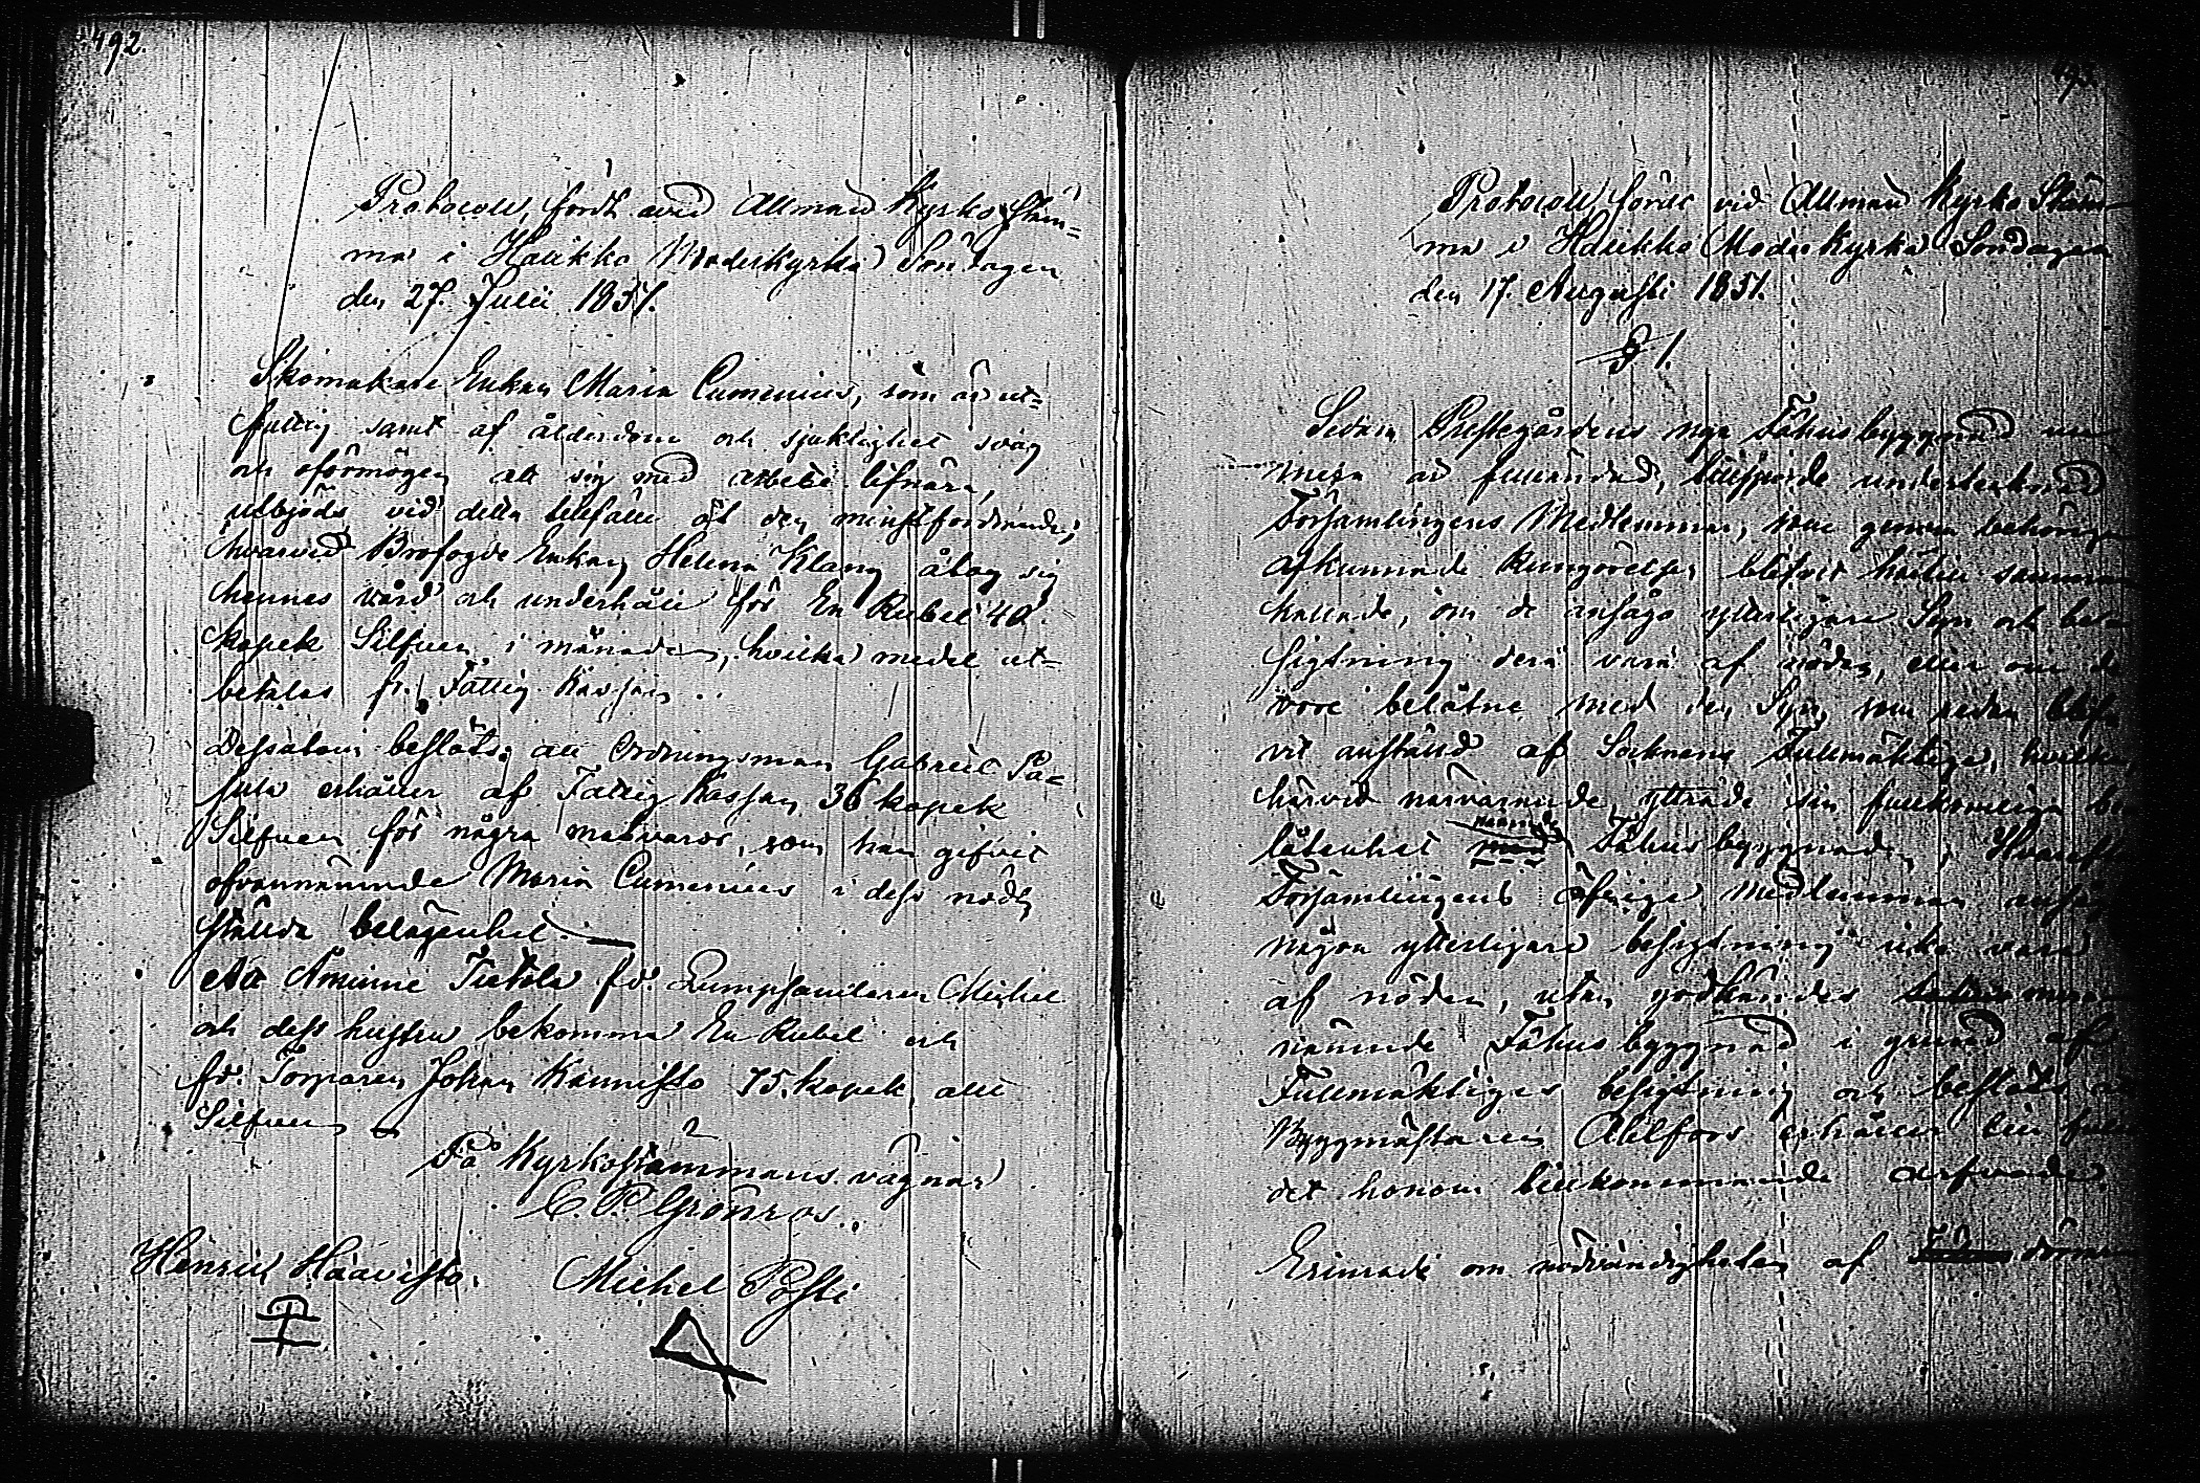 492.
Protocoll, fördt wid Allmän Kyrko stäm=
ma i Halikko Moderkyrka Söndagen
den 27. Julii 1851.
Skomakare Enkan Maria Cumenius, som är ut=
fattig samt af ålderdom och sjuklighet svag
och oförmögen att sig med arbete lifnära,
utbjöds vid detta tillfälle åt den minstfordrande;
hvarvid Brofogde Enkan Helena Klang åtog sig
hennes vård och underhåll för En Rubel 40
kopek Silfver i månaden, hvilka medel ut=
betalas fr. Fattig Kassan.
Dessutom beslöts: att Ordningsman Gabriel Pä=
sula erhåller af Fattig Kassan 36 kopek
Silfver för några matvaror, som han gifvit
ofvannämnde Maria Cumenius i dess nöd=
ställda belägenhet. —
Att Åminne Tietola fd. Lumpsamlaren Michel
och dess hustru bekomma En Rubel och
fd. Torparen Johan Kannisto 75. kopek, allt
Silfver
På Kyrkostämmans vägnar
C. P. Grönros.
Henric Haavisto.
Michel Påsti
493.
Protocoll fördt vid Allmän Kyrko Stäm=
ma i Halikko Moder Kyrka Söndagen
den 17. Augusti 1851.
§ 1.
Sedan Prestegårdens nya Fähusbyggnad nu
mera är fulländad, tillsporde undertecknad
Församlingens Medlemmar, som genom behörigen
afkunnade kungörelser blifvit härtill samman
kallade, om de ansågo ytterligare Syn och be
sigtning derå vara af nöden, eller om de
vore belåtne med den Syn, som redan blif
vit anställd af Socknens Fullmäktige, hvilka
härvid närvarande, yttrade sin fullkomliga be
låtenhet med Fähusbyggnaden; Hvarefter
Församlingens öfrige medlemmar ansågo
någon ytterligare besigtning icke vara
af nöden, utan godkändes
nämnde Fähusbyggnad i grund af
Fullmäktiges besigtning och beslöts att
Byggmästaren Ahlfors erhåller till fullo
det honom tillkommande arfvode.
Erinrade om nödvändigheten af